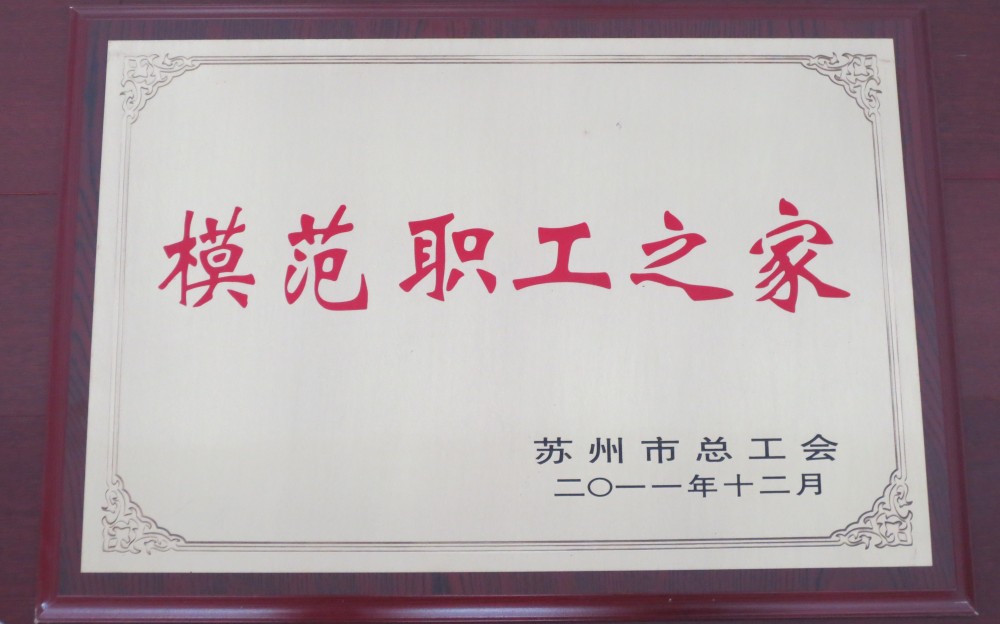 模范职工之家
苏州市总工会
二〇一一年十二月